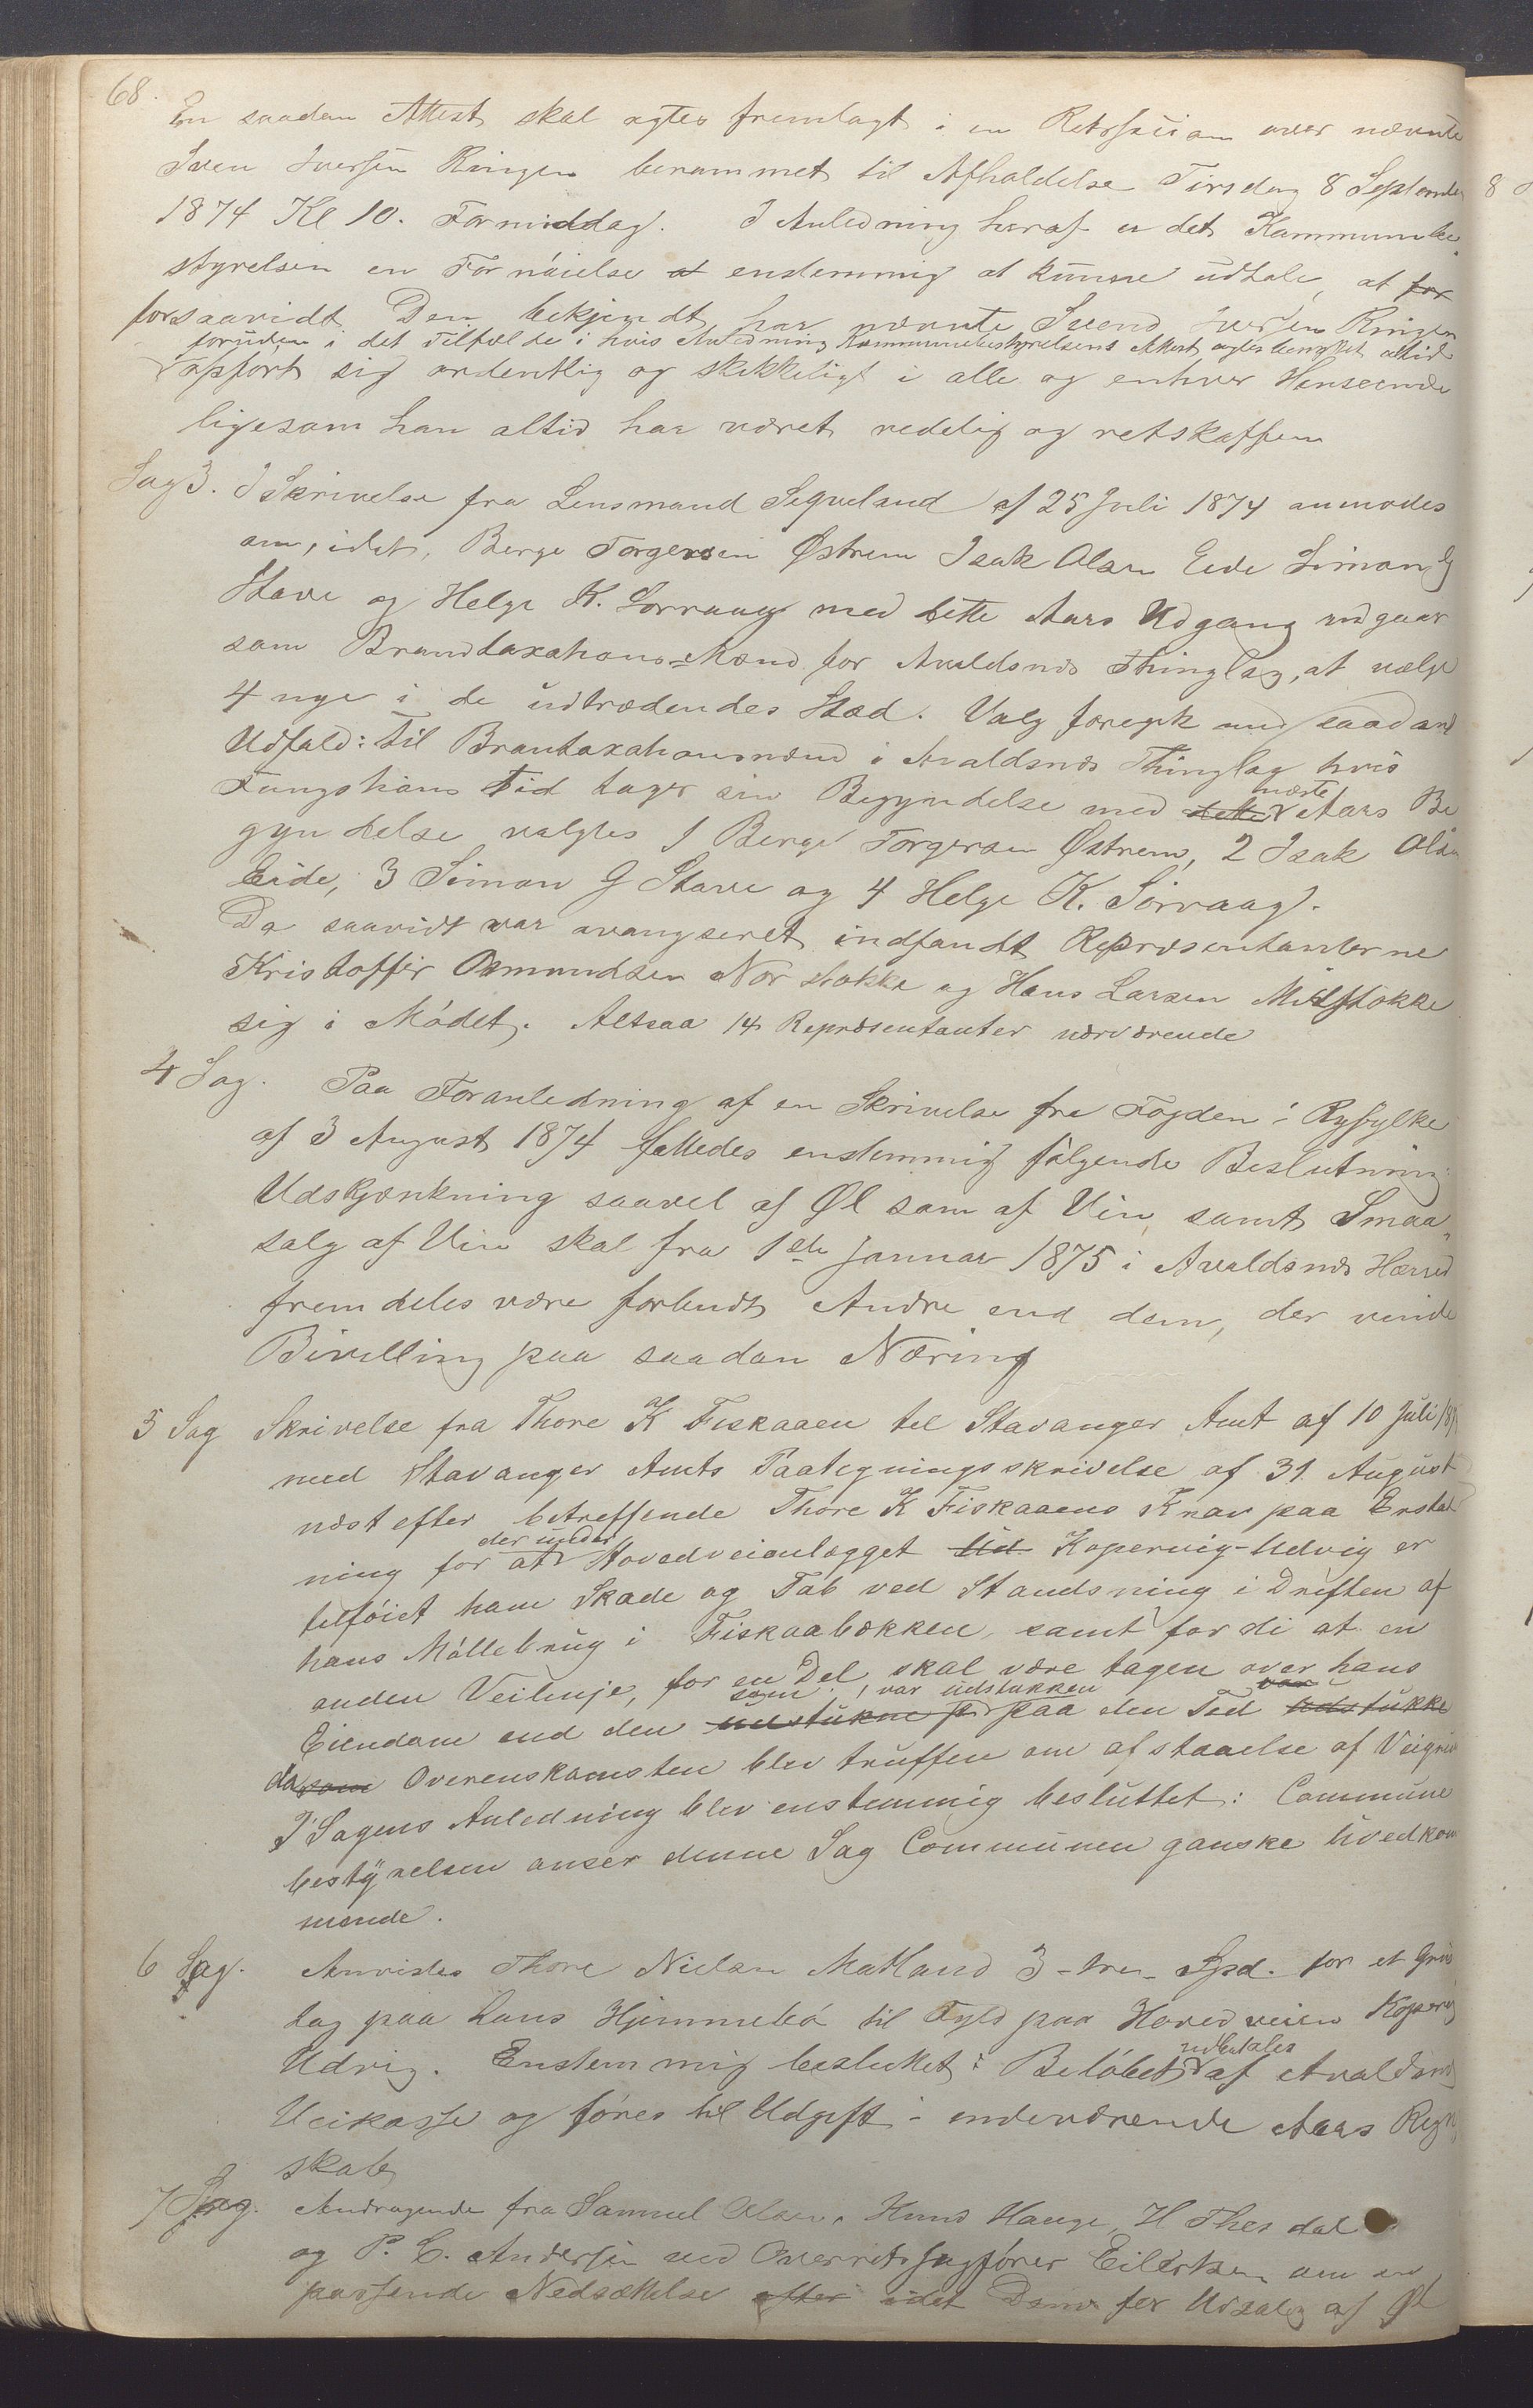 68.
En saadan Attest skal agtes fremlagt i en Retssession over nævnte
Sven Iversen Ringen berammet til Afholdelse Tirsdag 8 September
1874 Kl 10. Formiddag. I Anledning heraf er det Kommunebe„
styrelsen en Fornøielse at enstemmig at kunne udtale, at for
forsaavidt Den bekjendt har nævnte Svend Iversen Ringen
foruden i det Tilfælde i hvis Anledning Kommunebestyrelsens Attest agtes benyttet altid
opført sig ordentlig og skikkeligt i alle og enhver Henseende
ligesom han altid har været redelig og retskaffen
Sag 3. I Skrivelse fra Lensmand Sequeland af 25 Juli 1874 anmodes
om, idet, Berge Torgersen Østrem Isak Olsen Eide Simon G
Stave og Helge K. Sørvaag med dette Aars Udgang udgaar
som Brandtaxations-Mænd for Avaldsnæs Thinglag, at vælge
4 nye i de udtrædendes Sted. Valg foregik med saadant
Udfald: Til Brantaxationsmænd i Avaldsnæs Thinglag hvis
Fungtions Tid tager sin Begyndelse med dette næste Aars Be
gyndelse valgtes 1 Berge Torgersen Østrem, 2 Isak Olsen
Eide, 3 Simon G Stave og 4 Helge K. Sørvaag.
Da saavidt var avangseret indfandt Repræsentanterne
Kristoffer Osmundsen Nor Stokke og Hans Larsen Midstokke
sig i Mødet. Altsaa 14 Repræsentanter nærværende
4 Sag. Paa Foranledning af en Skrivelse fra Fogden i Ryfylke
af 3 August 1874 fattedes enstemmig følgende Beslutning:
Udskjænkning saavel af Øl som af Vin, samt Smaa„
salg af Vin skal fra 1ste Januar 1875 i Avaldsnæs Herred
fremdeles være forbudt Andre end dem, der vinde
Bevilling paa saadan Næring
5 Sag Skrivelse fra Thore K Fiskaaen til Stavanger Amt af 10 Juli
med Stavanger Amts Paategningsskrivelse af 31. August
næst efter betreffende Thore K Fiskaaens Krav paa Erstat
ning for at der under Hovedveianlægget Ud Kopervig-Udvig er
tilføiet ham Skade og Tab ved Standsning i Driften af
hans Møllebrug i Fiskaabækken, samt fordi at en
anden Veilinje, for en Del, skal være tagen over hans
Eiendom end den udstukne som var udstukken paa den Tid var udstukke
da som Overenskomsten blev truffen om afstaaelse af Veigrun
I Sagens Anledning blev enstemmig besluttet: Commune
bestyrelsen anser denne Sag Communen ganske uvedkom
mende.
6 Sag. Anvistes Thore Nielsen Matland 3-tre- Spd. for et Grus
tag paa hans Hjemmebø til Fyld paa Hovedveien Kopervig
Udvig. Enstemmig besluttet: Beløbet udbetales af Avaldsnæs
Veikasse og føres til Udgift i indeværende Aars Regn„
skab
7 Sag. Andragende fra Samuel Olsen, Knud Hauge, H Thesdal
og P. C. Andersen ved Overretssagfører Eilertsen om en
passende Nedsættelse efter idet for Udsalg af Øl